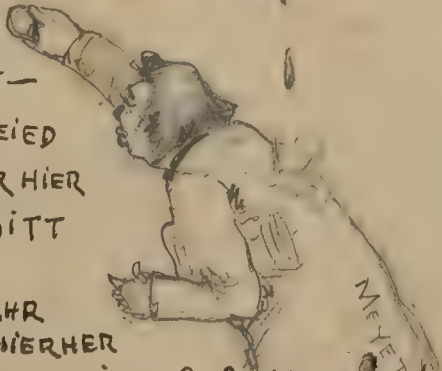 EIED
R HIER
ITT
HR
HIERHER
MEYER